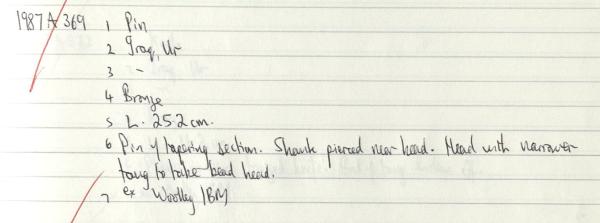 1987 A 369 1 Pin
2 Iraq, Ur
3 -
4 Bronze
5 L. 25.2 cm.
6 Pin of tapering section. Shank pierced near head. Head with narrower
tang to take bead head.
7 ex Woolley / BM